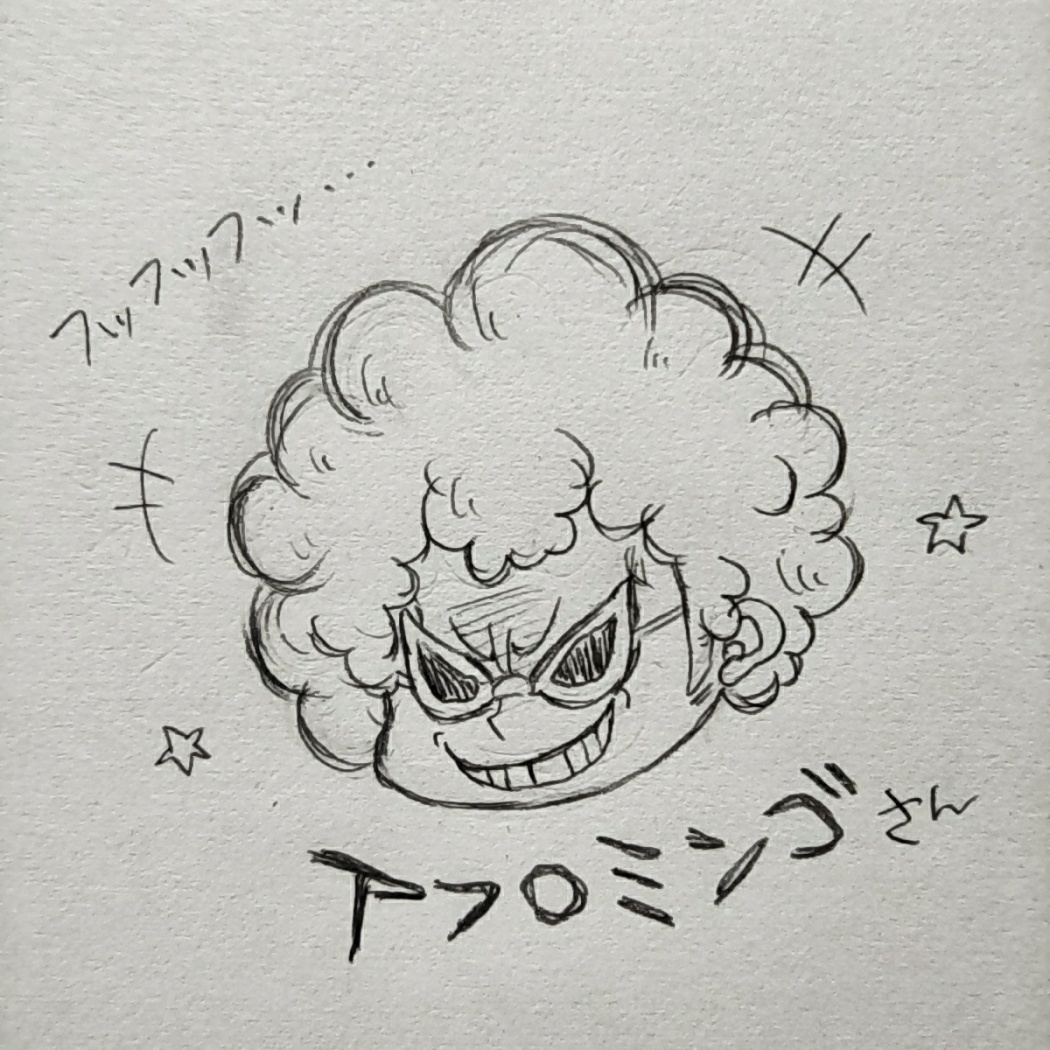 フッフッフッ…
アフロミンゴさん